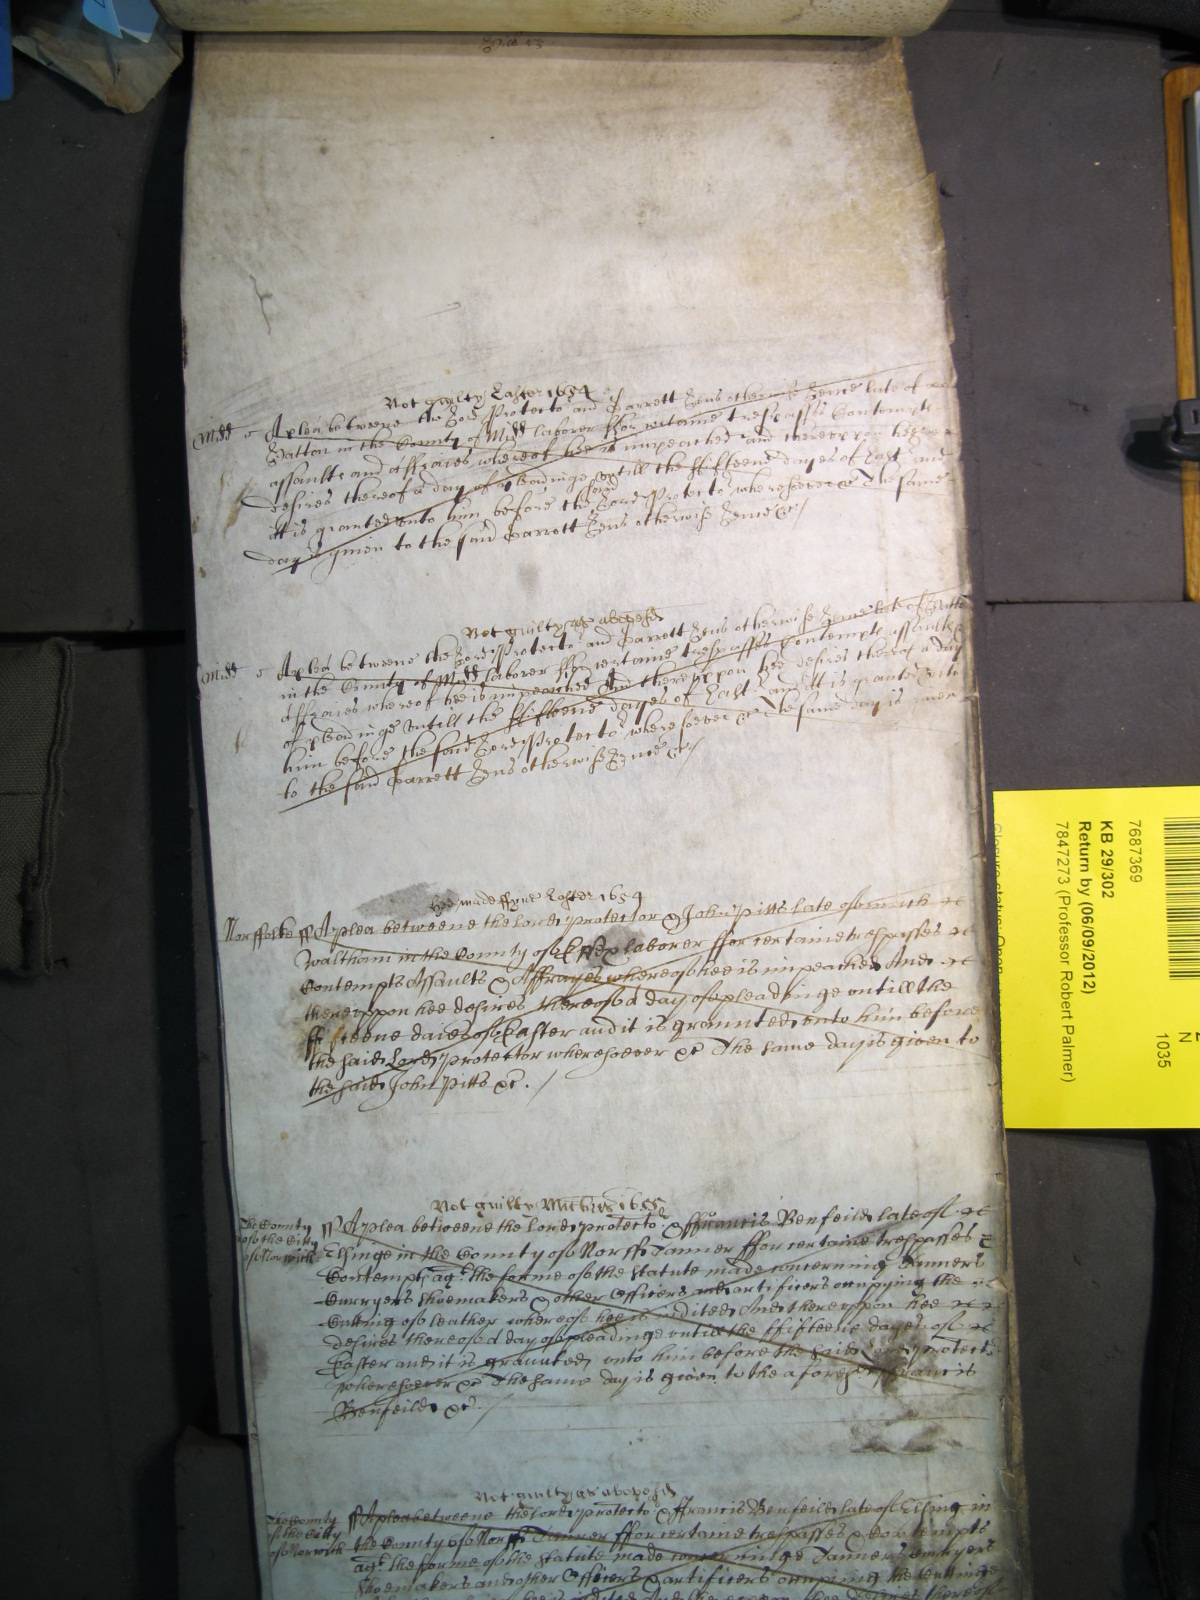 Not guilty Easter 1654
Midd A plea betweene the Lord Protector and Garrett otherwise late of
Hatton in the County of Midd laborer ffor certaine trespasses Contempts
assaults and affraies whereof hee is impeached and thereuppon hee
desires thereof a day of pleadinge untill the ffifteene dayes of East and
itt is granted unto him before the said Lord Protector wheresoever &c The same
day is given to the said Garrett otherwise &c
Not guilty as abovesd
Midd A plea betweene the Lord Protector and Garrett otherwise late of Hatton
in the County of Midd laborer ffor certaine trespasses Contempts assaults
Affraies whereof hee is impeached And thereuppon hee desires thereof a day
of pleadinge untill the ffifteene dayes of East and itt is granted unto
him before the said Lord Protector wheresoever &c The same day is given
to the said Garrett otherwise &c
hee made ffyne Easter 1654
Norffolke ss A plea betweene the Lord Protector & John Pitts late of
Waltham in the County of Essex laborer ffor certaine trespasses
Contempts Assaults & Affrayes whereof hee is impeached And
thereuppon hee desires thereof a day of pleadinge untill the
ffifteene daies of Easter and it is graunted unto him before
the said Lord Protector wheresoever &c The same day is given to
the said John Pitts &c.
Not guilty Michis 1655
The County
of the Citty
of Norwich
ss A plea betweene the Lord Protector & ffrancis Benfeild late of
Ellinge in the County of Norff Tanner ffor certaine trespasses &
Contempts agt the forme of the Statute made concerning Tanners
Curryers Shoemakers & other Officers and artificers occupying the
Cutting of leather whereof hee is indited And thereuppon hee
desires thereof a day of pleadinge untill the ffifteene dayes of
Easter and it is graunted unto him before the said Lord Protector
wheresoever &c The same day is given to the aforesd ffrancis
Benfeild &c.
Not guilty as abovesd
The County
of the Citty
of Norwich
ss A plea betweene the Lord Protector & ffrancis Benfeild late of Elling in
the County of Norff Tanner ffor certaine trespasses & Contempts
agt the forme of the Statute made concerninge Tanners Curryers
Shoemakers and other Officers & artificers occupying the Cuttinge
7687369
KB 29/302
Return by (06/09/2012)
7847273 (Professor Robert Palmer)
Closure status: Open
N
1035